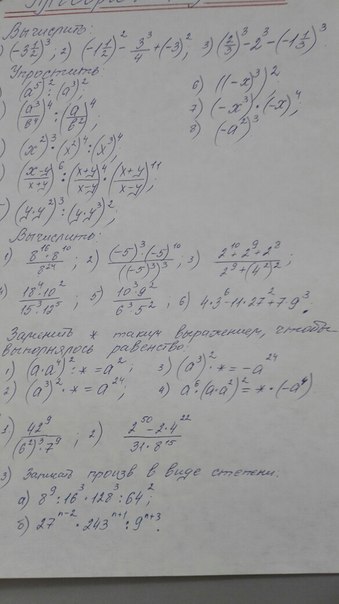 Вычислить:
) (-3 1/2)³, 2) (-1 1/2)² - 3³/4 + (-3)², 3) (2/3)³ - 2³ - (-1 1/3)³
Упростить:
) (a⁵)² : (a³)²; 6) ((-x)³)²
) (a³/b⁴)⁴ : (a/b²)⁴; 7) (-x³)·(-x)⁴;
) (x²)³·(x²)⁴ : (x³)⁴ 8) (-a²)³
) (x-y/x+y)⁶·(x+y/x-y)⁴·(x+y/x-y)¹¹;
) (y·y²)³ : (y·y³)²;
Вычислить:
1) 8¹⁶·8¹⁰/8²⁴; 2) (-5)³·(-5)¹⁰/((-5)³)³; 3) 2¹⁰+2⁹+2⁸/2⁹+(4²)²;
) 18⁴·10²/15³·12⁵; 5) 10³·9²/6³·5²; 6) 4·3⁶-11·27²+7·9³.
Заменить * таким выражением, чтобы
выполнялось равенство
1) (a·a⁴)² : * = a² 3) (a³)²·* = -a²⁴
2) (a³)²·* = a²⁴; 4) a⁶·(a·a²)² = *·(-a⁴)
) 42⁹/(6²)³·7⁹; 2) 2⁵⁰-2·4²²/31·8¹⁵
3) Записать произв в виде степени.
а) 8⁹:16³·128³:64²;
б) 27ⁿ⁻²·243ⁿ⁺¹:9ⁿ⁺³.